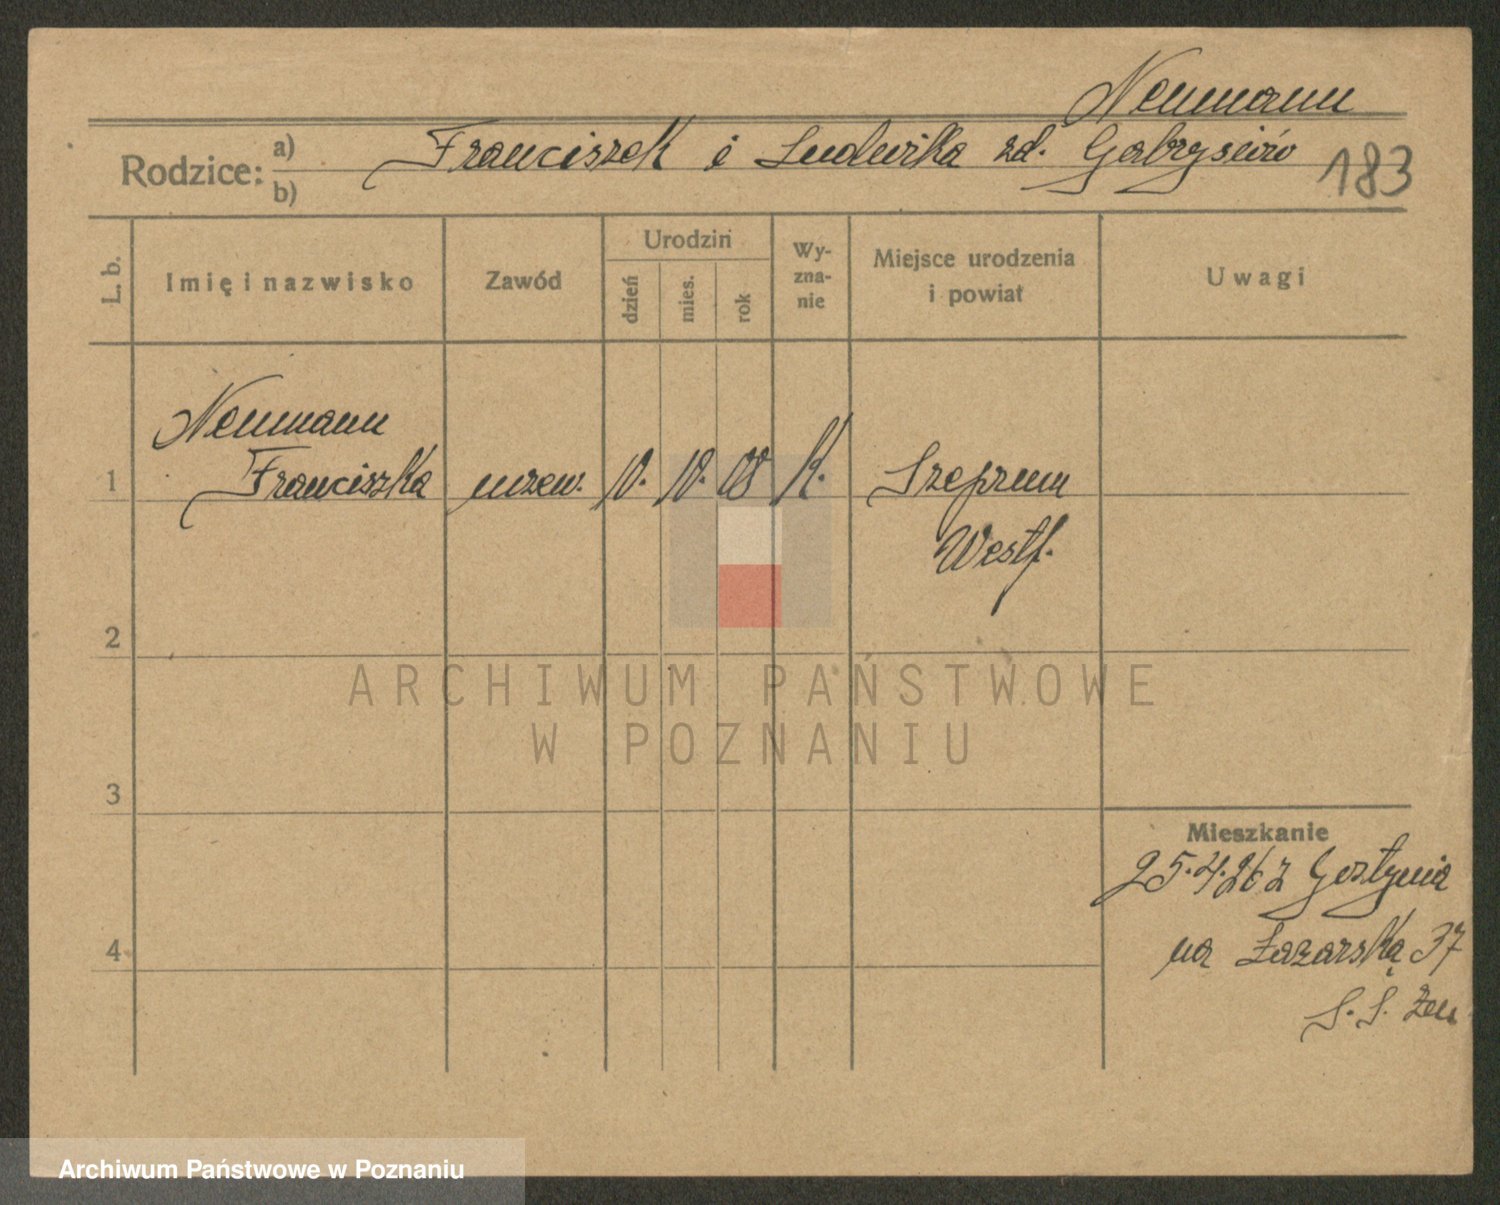 Neumann
Rodzice: a) Franciszek i Ludwika zd. Gabrysiów
b)
183
L. b.
Imię i nazwisko
Zawód
Urodzin
dzień
mies.
rok
Wy-
zna-
nie
Miejsce urodzenia
i powiat
Uwagi
Neumann
1 Franciszka uczen. 10. 10. 08 K.
Westf.
2
ARCHIWUM PAŃSTWOWE
W POZNANIU
3
Mieszkanie
25.4.26 z Gostynia
4 na Łazarską 37
S. S. Żeń
Archiwum Państwowe w Poznaniu